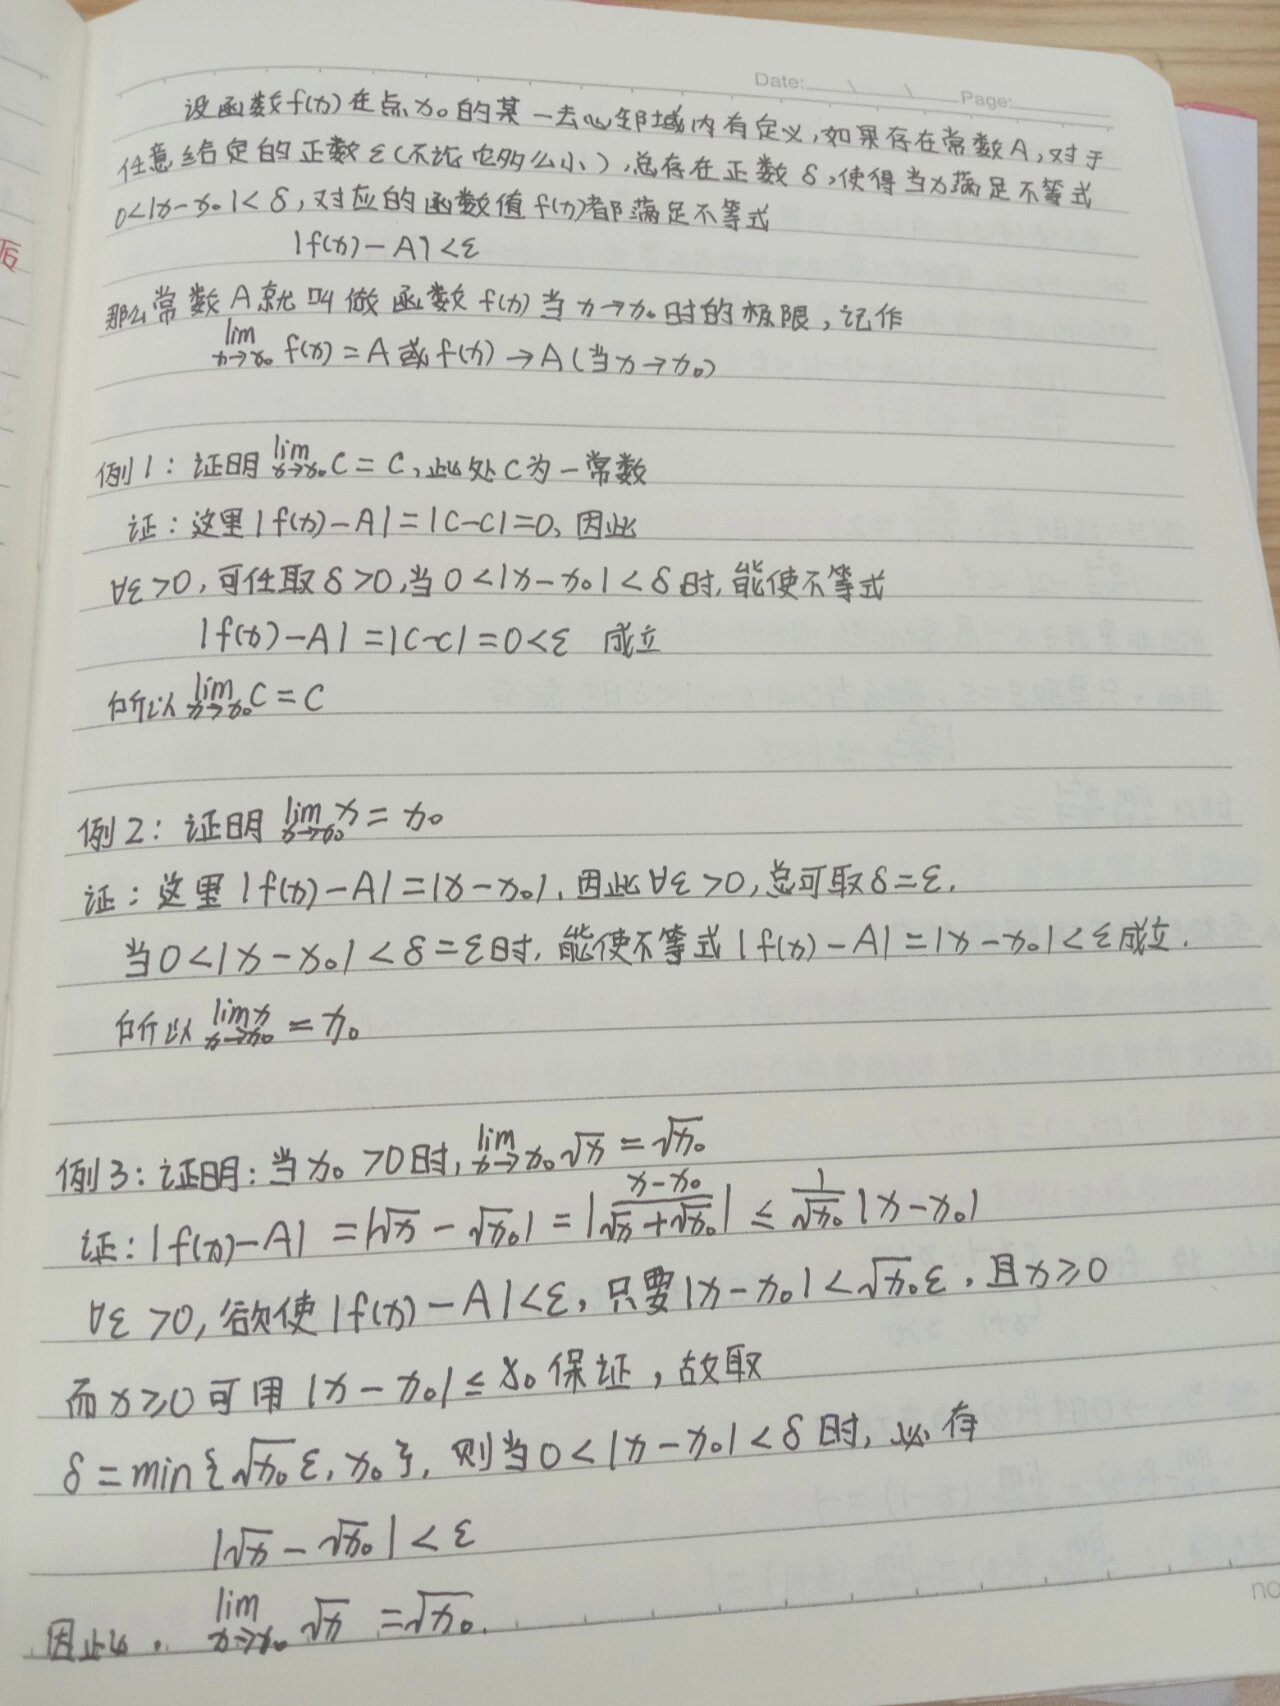 Date: \ \ Page:
设函数f(x)在点x₀的某一去心邻域内有定义,如果存在常数A,对于
任意给定的正数ε(不论它多么小),总存在正数δ,使得当x满足不等式
0<|x-x₀|<δ,对应的函数值f(x)都满足不等式
|f(x)-A|<ε
那么常数A就叫做函数f(x)当x→x₀时的极限,记作
lim x→x₀ f(x)=A或f(x)→A(当x→x₀)
例1:证明 lim x→x₀ C=C,此处C为一常数
证:这里|f(x)-A|=|C-C|=0,因此
∀ε>0,可任取δ>0,当0<|x-x₀|<δ时,能使不等式
|f(x)-A|=|C-C|=0<ε 成立
所以 lim x→x₀ C=C
例2:证明 lim x→x₀ x=x₀
证:这里|f(x)-A|=|x-x₀|.因此∀ε>0,总可取δ=ε.
当0<|x-x₀|<δ=ε时,能使不等式|f(x)-A|=|x-x₀|<ε成立.
所以 lim x→x₀ x=x₀
例3:证明:当x₀>0时, lim x→x₀ √x=√x₀
证:|f(x)-A|=|√x-√x₀|=|(x-x₀)/(√x+√x₀)|≤1/√x₀|x-x₀|
∀ε>0,欲使|f(x)-A|<ε,只要|x-x₀|<√x₀ε,且x≥0
而x≥0可用|x-x₀|≤x₀保证,故取
δ=min{√x₀ε,x₀},则当0<|x-x₀|<δ时,必存
|√x-√x₀|<ε
因此. lim x→x₀ √x=√x₀.
no
后